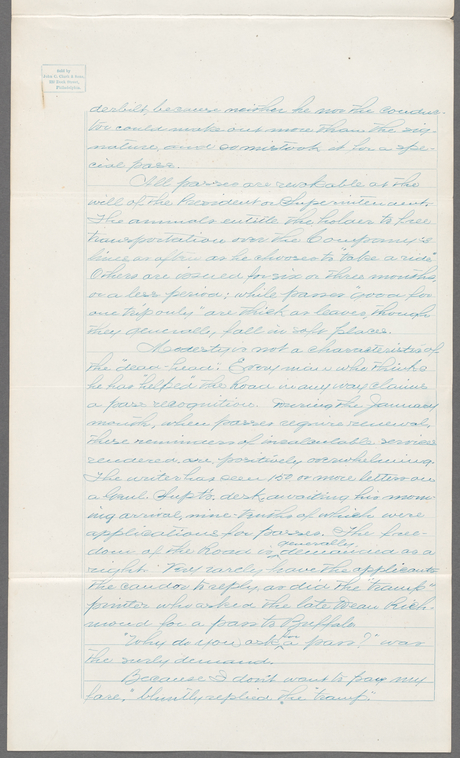 Sold by
John C. Clark & Sons,
230 Dock Street,
Philadelphia.
derbilt, because neither he nor the conduc-
tor could make out more than the sig-
nature, and so mistook it for a spe-
cial pass.
All passes are revokable at the
will of the President or Superintendent.
The annuals entitle the holder to free
transportation over the Company's
lines as often as he chooses to "take a ride".
Others are issued for six or three months,
or a less period; while passes "good for
one trip only" are thick as leaves, though
they generally fall in soft places.
Modesty is not a characteristic of
the "dead-head". Every man who thinks
he has helped the Road in any way claims
a pass recognition. During the January
month, when passes require renewal,
these reminders of incalculable services
rendered are positively overwhelming.
The writer has seen 150 or more letters on
a Genl. Supt's. desk, awaiting his morn-
ing arrival, nine-tenths of which were
applications for passes. The free-
dom of the Road is generally demanded as a
right. Very rarely have the applicants
the candor to reply, as did the "tramp"
printer who asked the late Dean Rich-
mond for a pass to Buffalo.
"Why do you ask for a pass?" was
the surly demand.
"Because I don't want to pay my
fare," bluntly replied the "tramp".